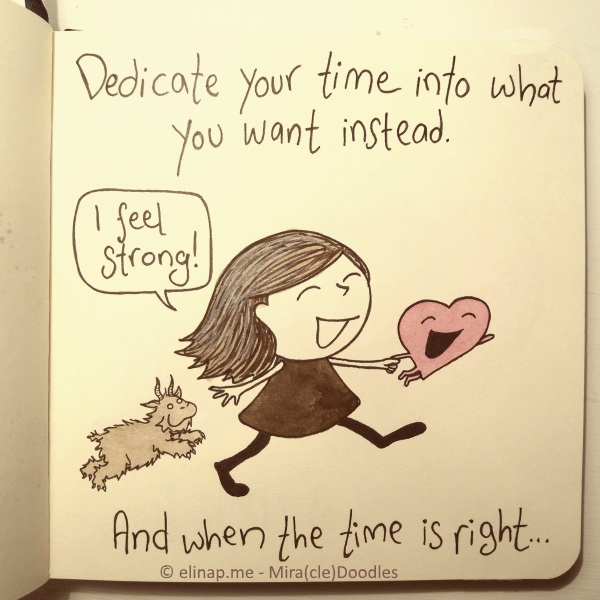 Dedicate your time into what
you want instead.
I feel
strong!
And when the time is right...
© elinap.me - Mira(cle)Doodles